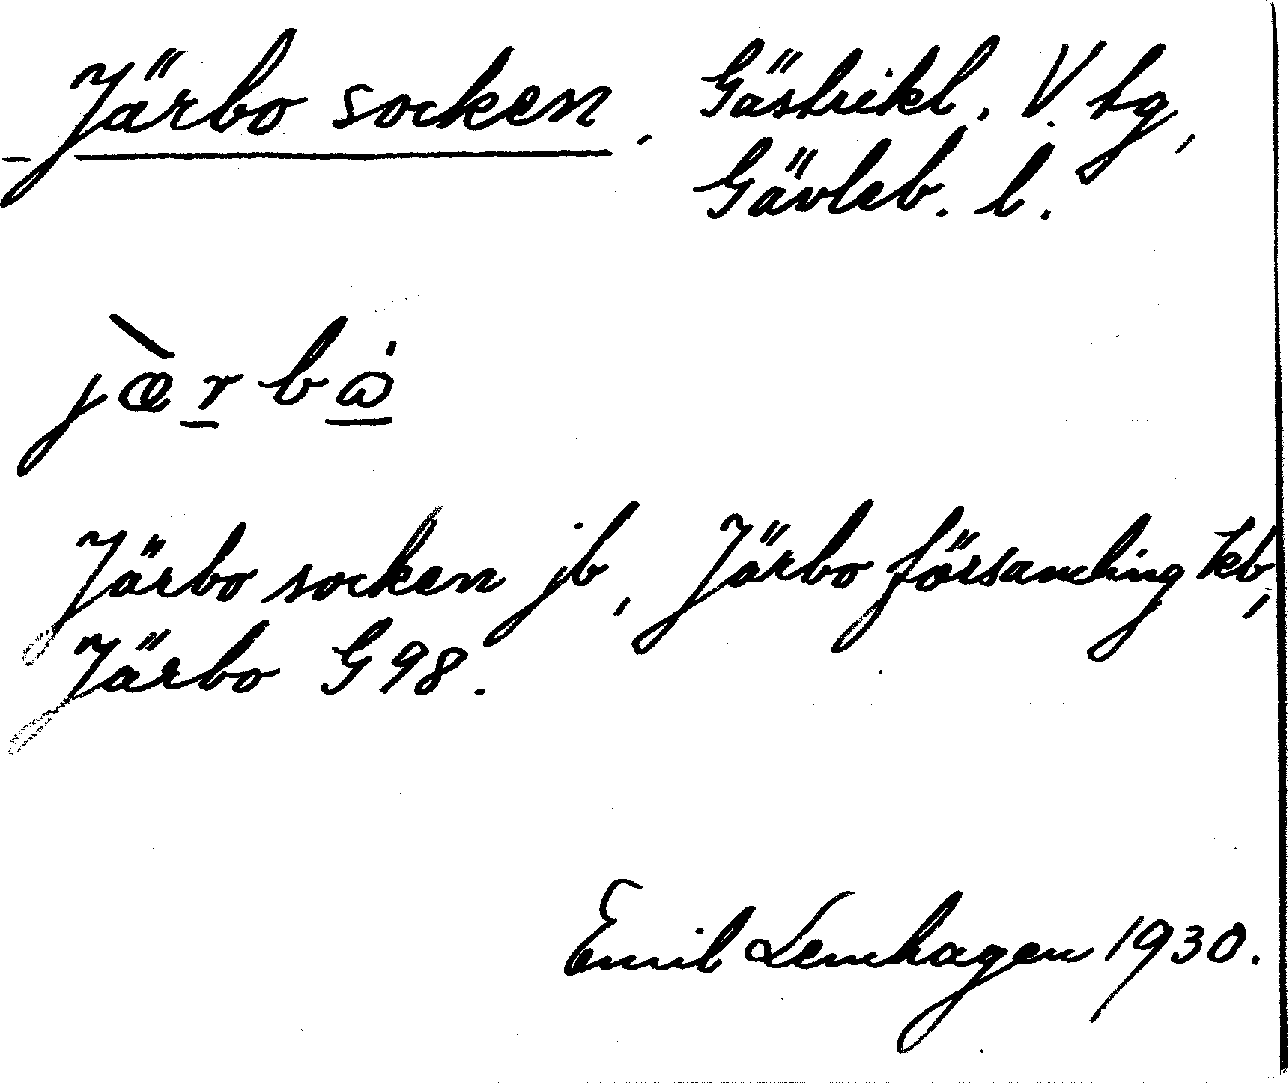 Järbo socken, Gästrikl. V. tg,
Gävleb. l.
jæ̀rbå
Järbo socken jb, Järbo församling kb,
Järbo G 98.
Emil Lemhagen 1930.